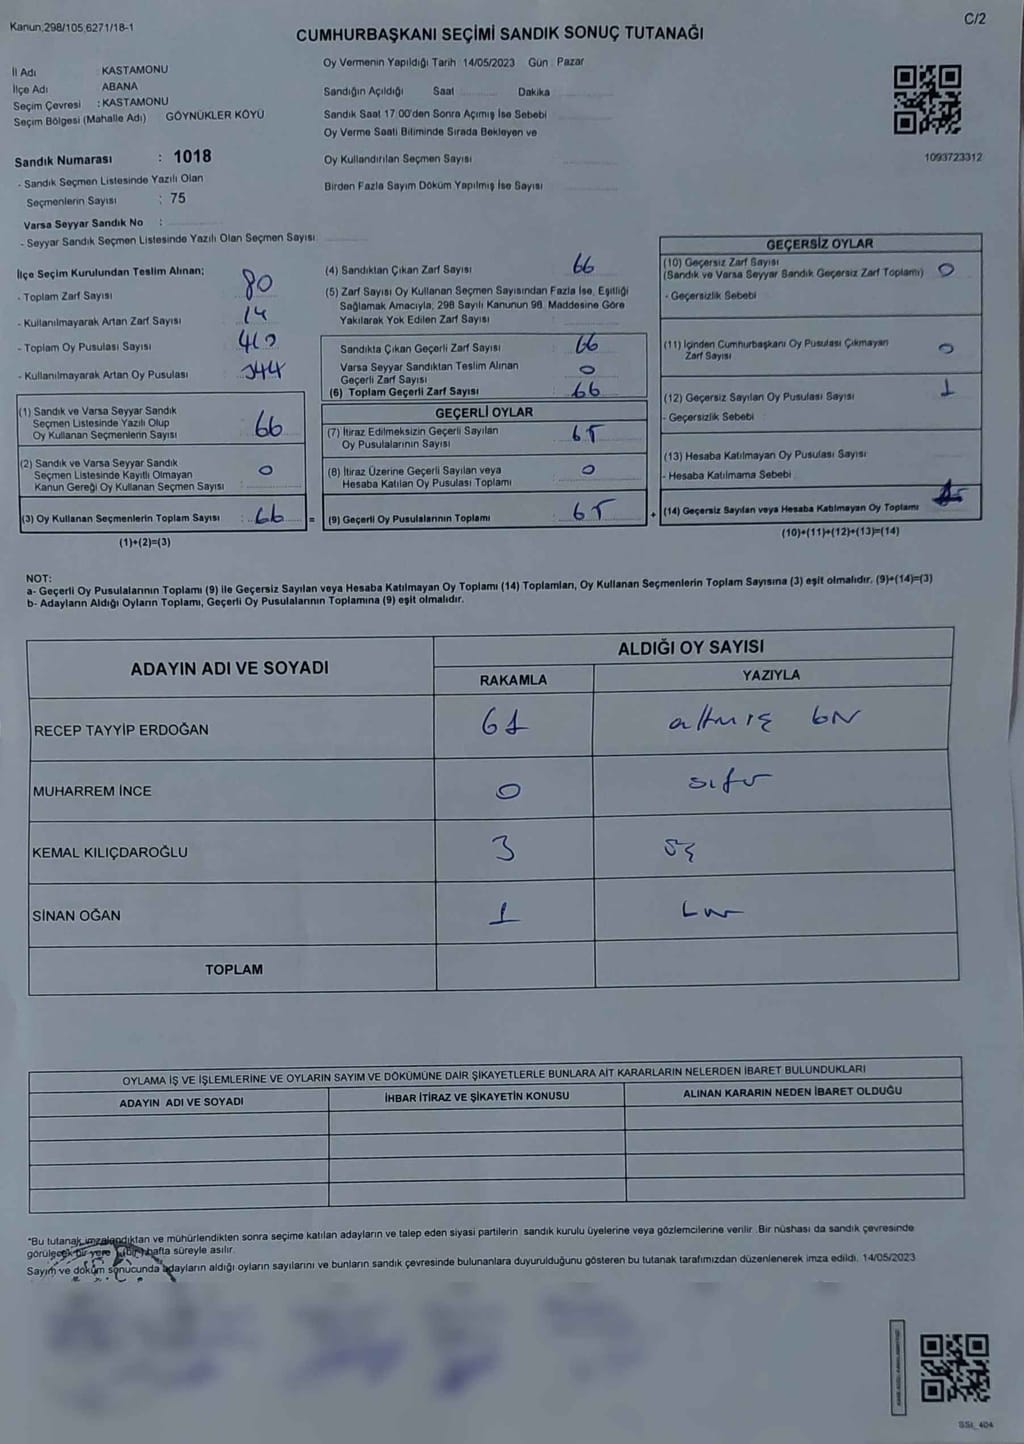 Kanun:298/105,6271/18-1
C/2
CUMHURBAŞKANI SEÇİMİ SANDIK SONUÇ TUTANAĞI
İl Adı : KASTAMONU
İlçe Adı : ABANA
Seçim Çevresi : KASTAMONU
Seçim Bölgesi (Mahalle Adı) GÖYNÜKLER KÖYÜ
Sandık Numarası : 1018
- Sandık Seçmen Listesinde Yazılı Olan
Seçmenlerin Sayısı : 75
Varsa Seyyar Sandık No :
- Seyyar Sandık Seçmen Listesinde Yazılı Olan Seçmen Sayısı
Oy Vermenin Yapıldığı Tarih 14/05/2023 Gün : Pazar
Sandığın Açıldığı Saat Dakika
Sandık Saat 17:00'den Sonra Açımış İse Sebebi
Oy Verme Saati Bitiminde Sırada Bekleyen ve
Oy Kullandırılan Seçmen Sayısı
Birden Fazla Sayım Döküm Yapılmış İse Sayısı
1093723312
İlçe Seçim Kurulundan Teslim Alınan;
- Toplam Zarf Sayısı 80
- Kullanılmayarak Artan Zarf Sayısı 14
- Toplam Oy Pusulası Sayısı
- Kullanılmayarak Artan Oy Pusulası 344
(1) Sandık ve Varsa Seyyar Sandık
Seçmen Listesinde Yazılı Olup
Oy Kullanan Seçmenlerin Sayısı 66
(2) Sandık ve Varsa Seyyar Sandık
Seçmen Listesinde Kayıtlı Olmayan
Kanun Gereği Oy Kullanan Seçmen Sayısı 0
(3) Oy Kullanan Seçmenlerin Toplam Sayısı : 66 =
(1)+(2)=(3)
(4) Sandıktan Çıkan Zarf Sayısı 66
(5) Zarf Sayısı Oy Kullanan Seçmen Sayısından Fazla İse, Eşitliği
Sağlamak Amacıyla; 298 Sayılı Kanunun 98. Maddesine Göre
Yakılarak Yok Edilen Zarf Sayısı
Sandıkta Çıkan Geçerli Zarf Sayısı 66
Varsa Seyyar Sandıktan Teslim Alınan
Geçerli Zarf Sayısı 0
(6) Toplam Geçerli Zarf Sayısı 66
GEÇERLİ OYLAR
(7) İtiraz Edilmeksizin Geçerli Sayılan
Oy Pusulalarının Sayısı 65
(8) İtiraz Üzerine Geçerli Sayılan veya
Hesaba Katılan Oy Pusulası Toplamı 0
(9) Geçerli Oy Pusulalarının Toplamı 65 +
GEÇERSİZ OYLAR
(10) Geçersiz Zarf Sayısı
(Sandık ve Varsa Seyyar Sandık Geçersiz Zarf Toplamı) 0
- Geçersizlik Sebebi
(11) İçinden Cumhurbaşkanı Oy Pusulası Çıkmayan
Zarf Sayısı 0
(12) Geçersiz Sayılan Oy Pusulası Sayısı 1
- Geçersizlik Sebebi
(13) Hesaba Katılmayan Oy Pusulası Sayısı
- Hesaba Katılmama Sebebi
(14) Geçersiz Sayılan veya Hesaba Katılmayan Oy Toplamı
(10)+(11)+(12)+(13)=(14)
NOT:
a- Geçerli Oy Pusulalarının Toplamı (9) ile Geçersiz Sayılan veya Hesaba Katılmayan Oy Toplamı (14) Toplamları, Oy Kullanan Seçmenlerin Toplam Sayısına (3) eşit olmalıdır. (9)+(14)=(3)
b- Adayların Aldığı Oyların Toplamı, Geçerli Oy Pusulalarının Toplamına (9) eşit olmalıdır.
ADAYIN ADI VE SOYADI
ALDIĞI OY SAYISI
RAKAMLA YAZIYLA
RECEP TAYYİP ERDOĞAN 61 altmış bir
MUHARREM İNCE 0 sıfır
KEMAL KILIÇDAROĞLU 3 üç
SİNAN OĞAN 1 bir
TOPLAM
OYLAMA İŞ VE İŞLEMLERİNE VE OYLARIN SAYIM VE DÖKÜMÜNE DAİR ŞİKAYETLERLE BUNLARA AİT KARARLARIN NELERDEN İBARET BULUNDUKLARI
ADAYIN ADI VE SOYADI İHBAR İTİRAZ VE ŞİKAYETİN KONUSU ALINAN KARARIN NEDEN İBARET OLDUĞU
"Bu tutanak imzalandıktan ve mühürlendikten sonra seçime katılan adayların ve talep eden siyasi partilerin sandık kurulu üyelerine veya gözlemcilerine verilir .Bir nüshası da sandık çevresinde
görülecek bir yere (bir) hafta süreyle asılır.
Sayım ve döküm sonucunda adayların aldığı oyların sayılarını ve bunların sandık çevresinde bulunanlara duyurulduğunu gösteren bu tutanak tarafımızdan düzenlenerek imza edildi. 14/05/2023
SSI_404